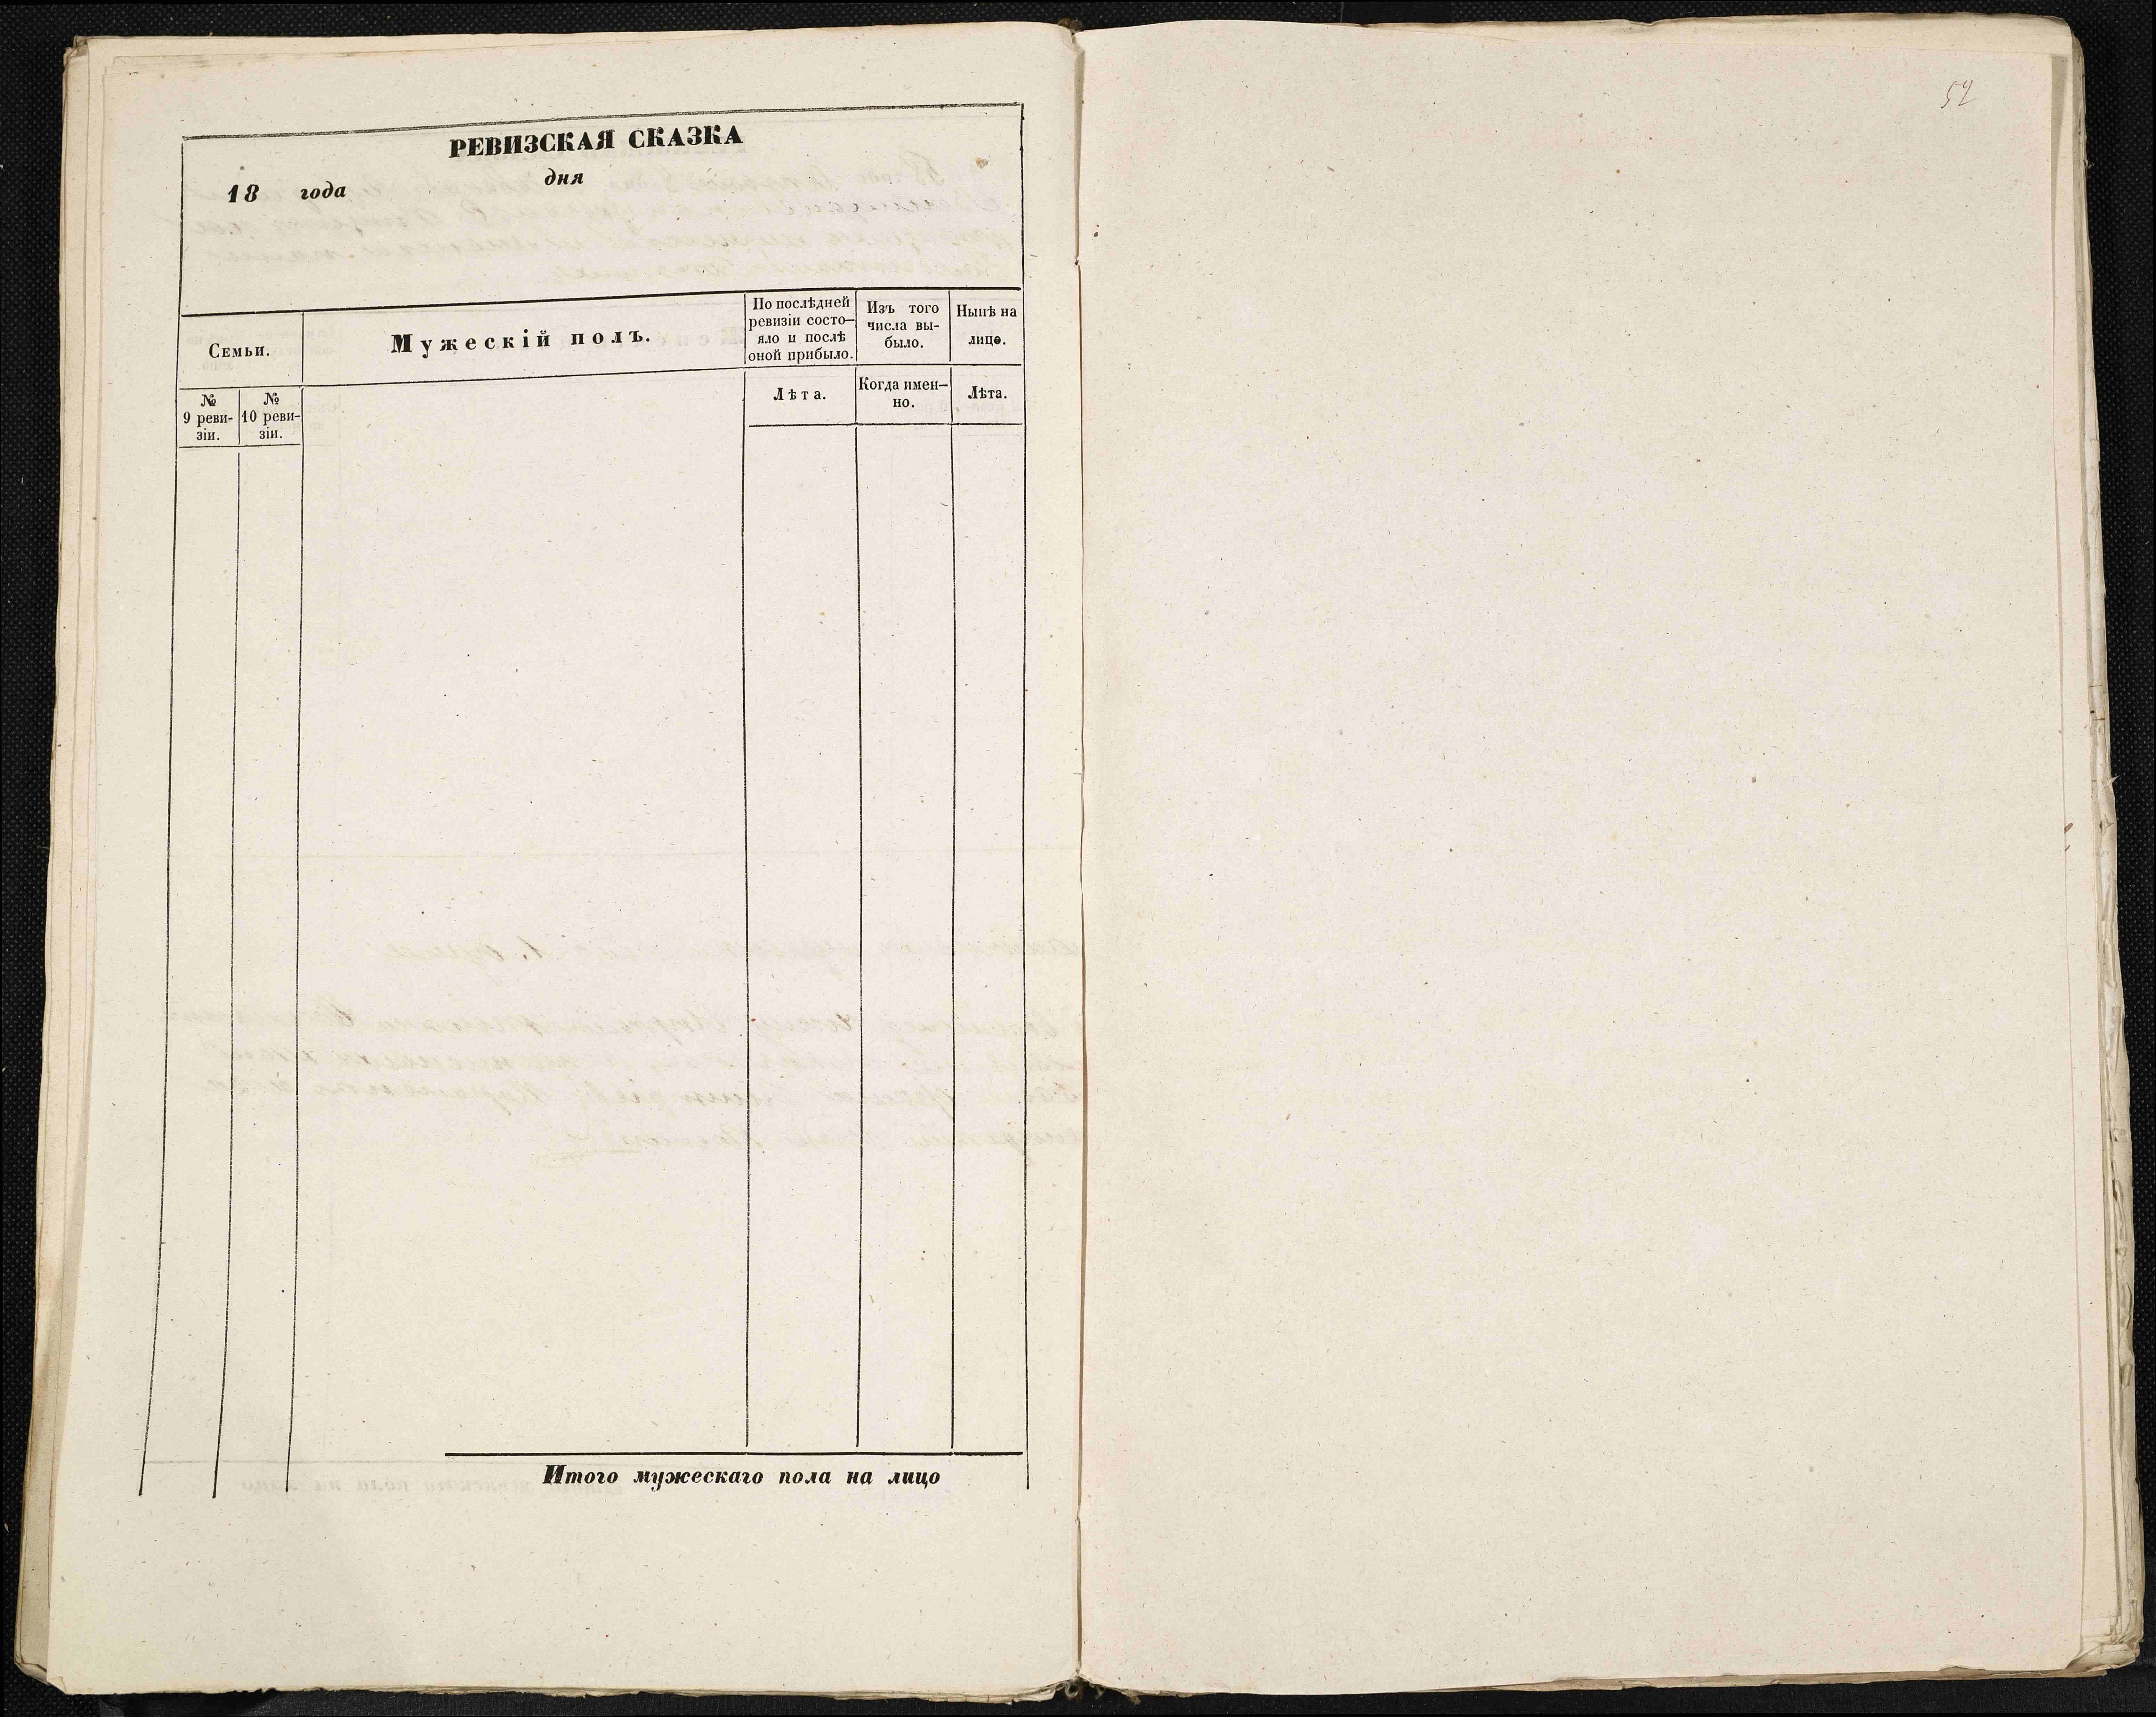 52
РЕВИЗСКАЯ СКАЗКА
18 года дня
Семьи.
Мужескій полъ.
По послѣдней
ревизіи состо—
яло и послѣ
оной прибыло.
Изъ того
числа вы-
было.
Нынѣ на
лице.
№
9 реви-
зіи.
№
10 реви-
зіи.
Лѣта.
Когда имен—
но.
Лѣта.
Итого мужескаго пола на лицо